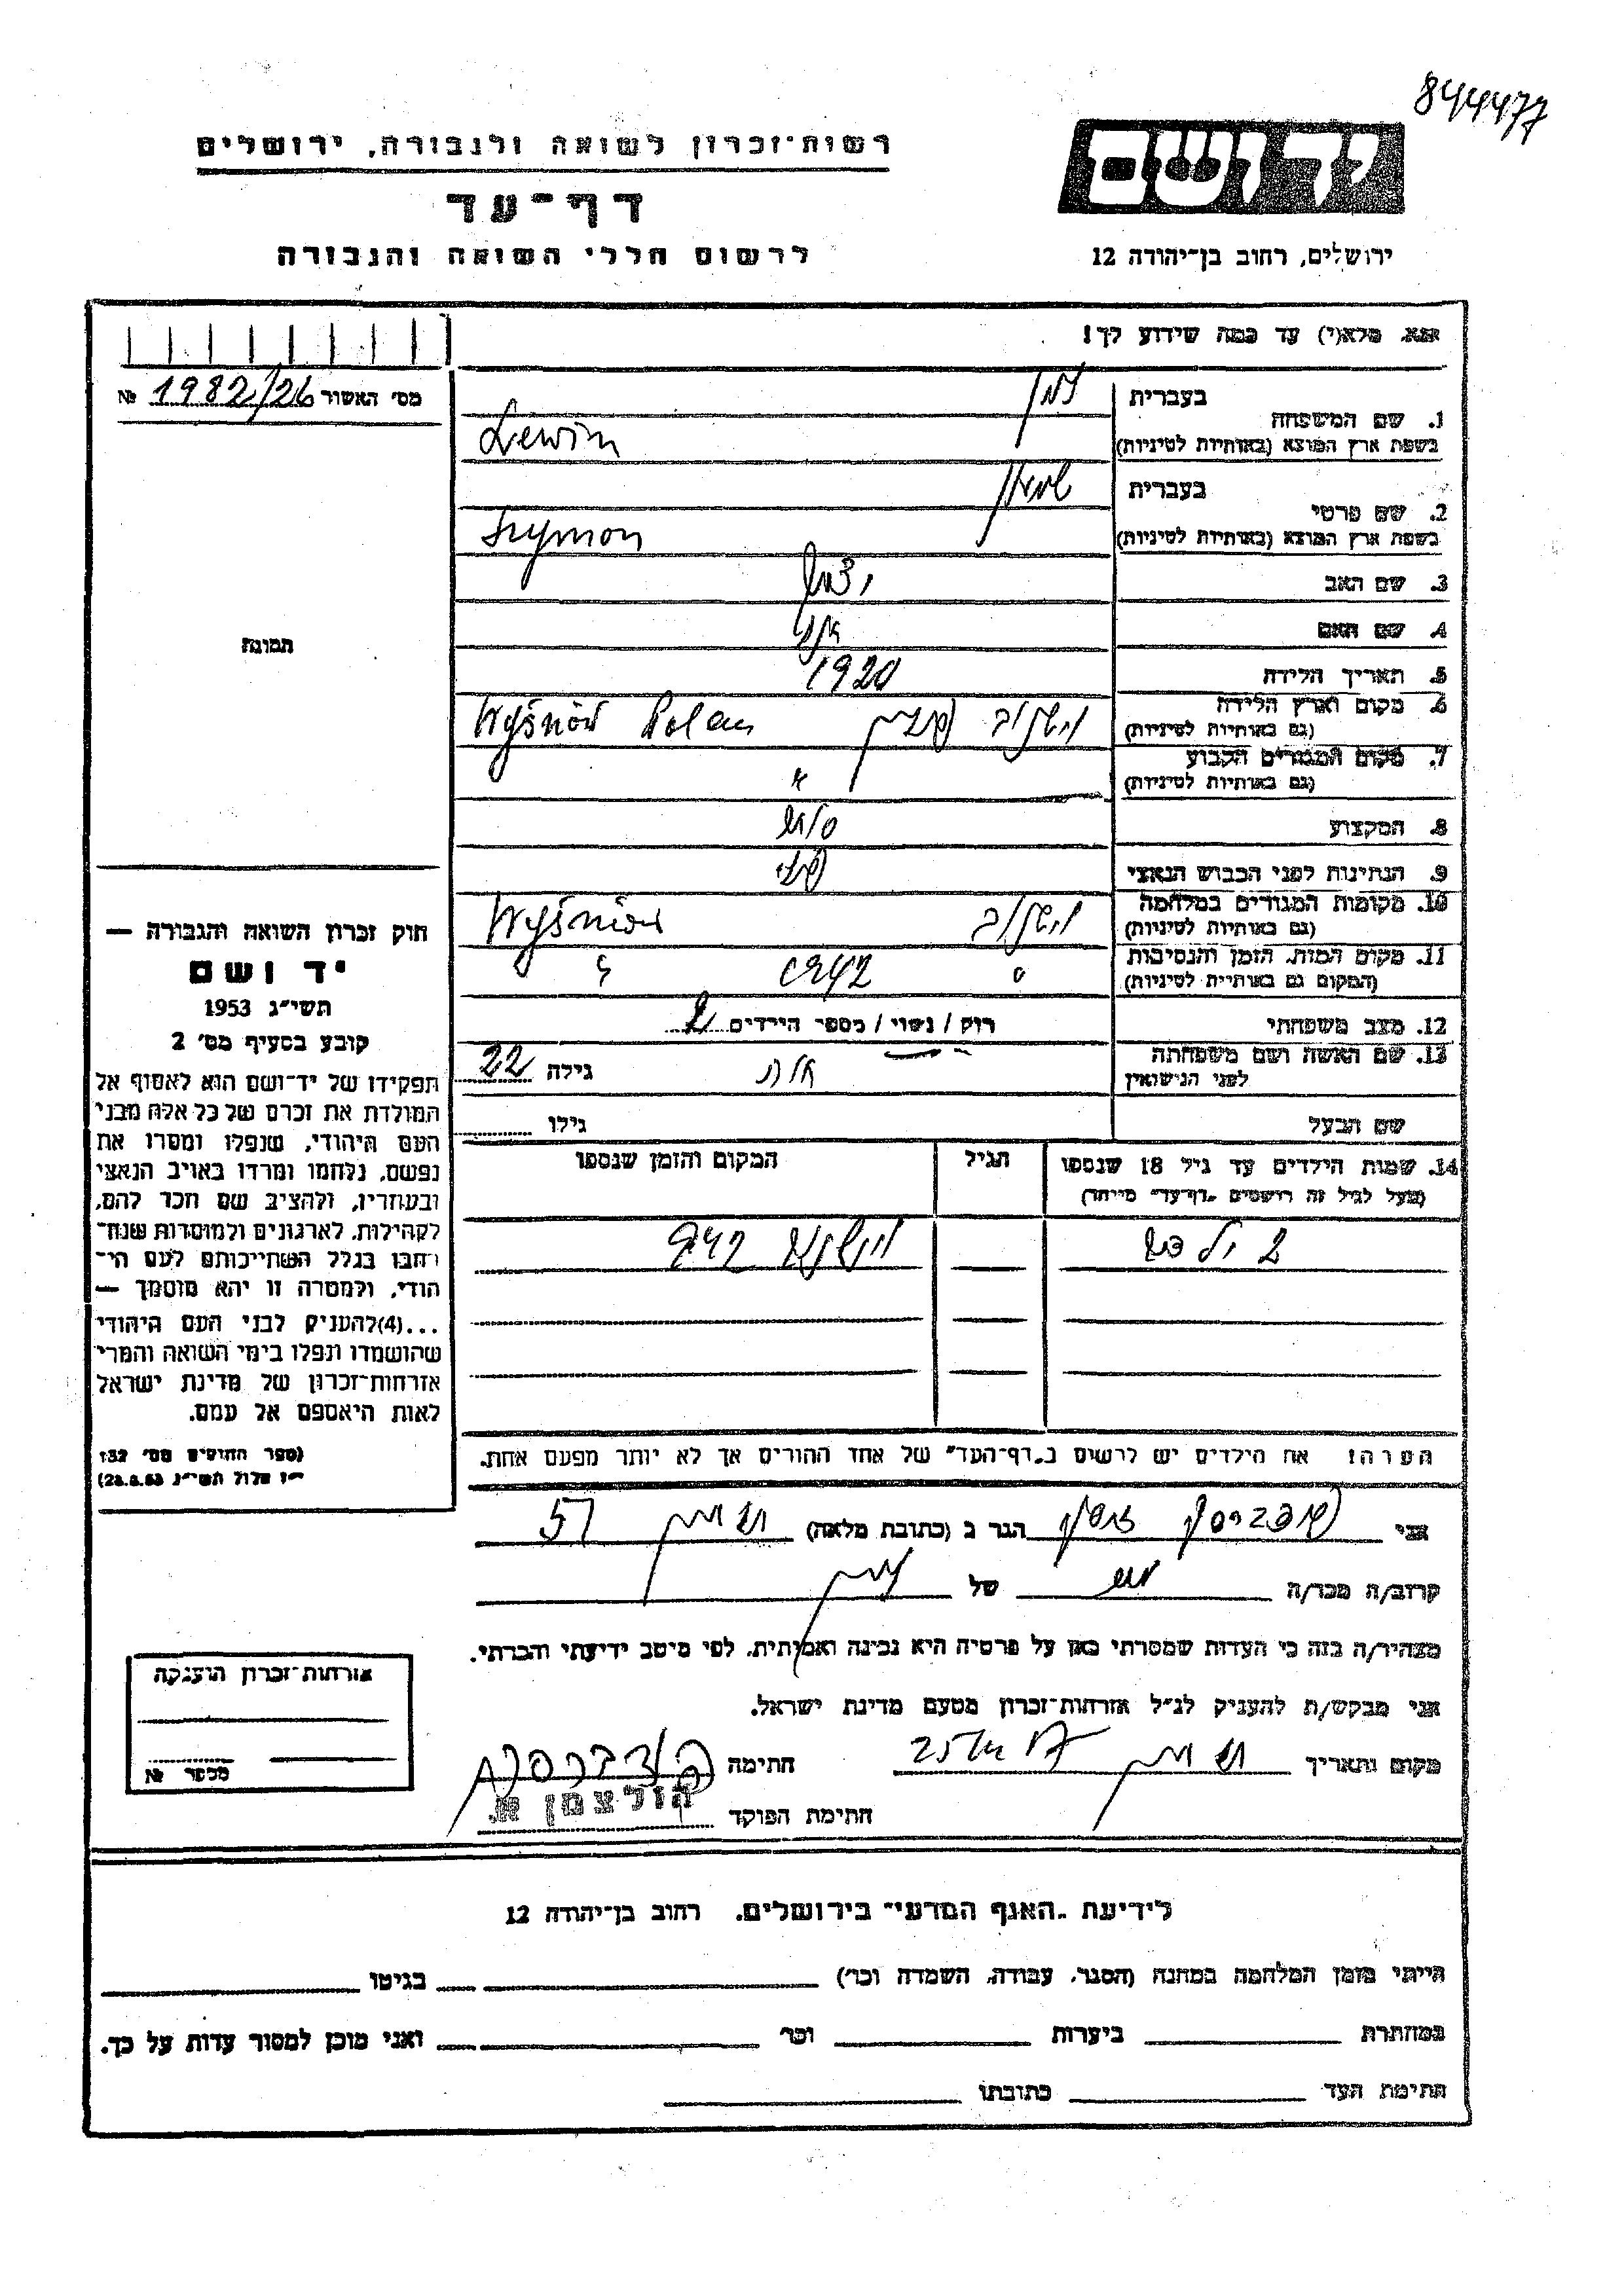 844477
רשות־זכרון לשואה ולגבורה, ירושלים
יד ושם
דף־עד
לרשום חללי השואה והגבורה
ירושלים, רחוב בן־יהודה 12
אנא, מלא(י) עד כמה שידוע לך!
מס' האשור 1982/26 №
בעברית
1. שם המשפחה
בשפת ארץ המוצא (באותיות לטיניות) Lewin
בעברית שמאון
2. שם פרטי
בשפת ארץ המוצא (באותיות לטיניות) Szymon
3. שם האב
4. שם האם
5. תאריך הלידה 1920
6. מקום וארץ הלידה
(גם באותיות לטיניות) Wyśniów Polen
7. מקום המגורים הקבוע
(גם באותיות לטיניות) "
8. המקצוע
9. הנתינות לפני הכבוש הנאצי
10. מקומות המגורים במלחמה
(גם באותיות לטיניות) Wyśniów
11. מקום המות, הזמן והנסיבות 1942
(המקום גם באותיות לטיניות)
12. מצב משפחתי רוק / נשוי / מספר הילדים 2
13. שם האשה ושם משפחתה
לפני הנישואין גילה 22
שם הבעל גילו
14. שמות הילדים עד גיל 18 שנספו הגיל המקום והזמן שנספו
(מעל לגיל זה רושמים "דף־עד" מיוחד)
2 ילדים 942
הערה: את הילדים יש לרשום ב"דף־העד" של אחד ההורים אך לא יותר מפעם אחת.
תמונה
חוק זכרון השואה והגבורה —
יד ושם
תשי"ג 1953
קובע בסעיף מס' 2
תפקידו של יד־ושם הוא לאסוף אל
המולדת את זכרם של כל אלה מבני
העם היהודי, שנפלו ומסרו את
נפשם, נלחמו ומרדו באויב הנאצי
ובעוזריו, ולהציב שם וזכר להם,
לקהילות, לארגונים ולמוסדות שנח־
רבו בגלל השתייכותם לעם הי־
הודי, ולמטרה זו יהא מוסמך —
...(4)להעניק לבני העם היהודי
שהושמדו ונפלו בימי השואה והמרי
אזרחות־זכרון של מדינת ישראל
לאות היאספם אל עמם.
(ספר החוקים מס' 132
י"ז אלול תשי"ג 28.8.53)
אני הגר ב (כתובת מלאה) 57
קרוב/ה מכר/ה של
מצהיר/ה בזה כי העדות שמסרתי כאן על פרטיה היא נכונה ואמיתית, לפי מיטב ידיעתי והכרתי.
אני מבקש/ת להעניק לנ"ל אזרחות־זכרון מטעם מדינת ישראל.
מקום ותאריך חתימה
חתימת הפוקד הולצמן א.
אזרחות־זכרון הוענקה
מספר №
לידיעת "האגף המדעי" בירושלים, רחוב בן־יהודה 12
הייתי בזמן המלחמה במחנה (הסגר, עבודה, השמדה וכו') בגיטו
במחתרת ביערות וכו' ואני מוכן למסור עדות על כך.
חתימת העד כתובתו